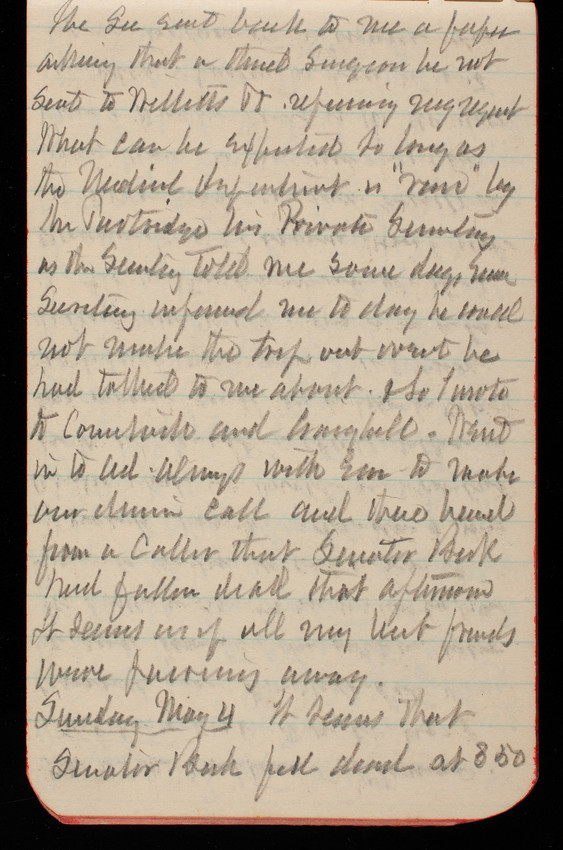 The Sec sent back to me a paper
asking that a third Surgeon be not
sent to Willetts Pt. refusing my request
What can be expected so long as
the Medical Department is "run" by
Mr Partridge his Private Secretary
as the Secretary told me some days since
Secretary informed me to day he could
not make the trip out west he
had talked to me about. & So I wrote
to Comstock and Craighill. Went
in to with Em to make
our dinner call and there heard
from a Caller that Senator Beck
had fallen dead that afternoon
It seems as if all my best friends
were passing away.
Sunday May 4 It seems that
Senator Beck fell dead at 3.50